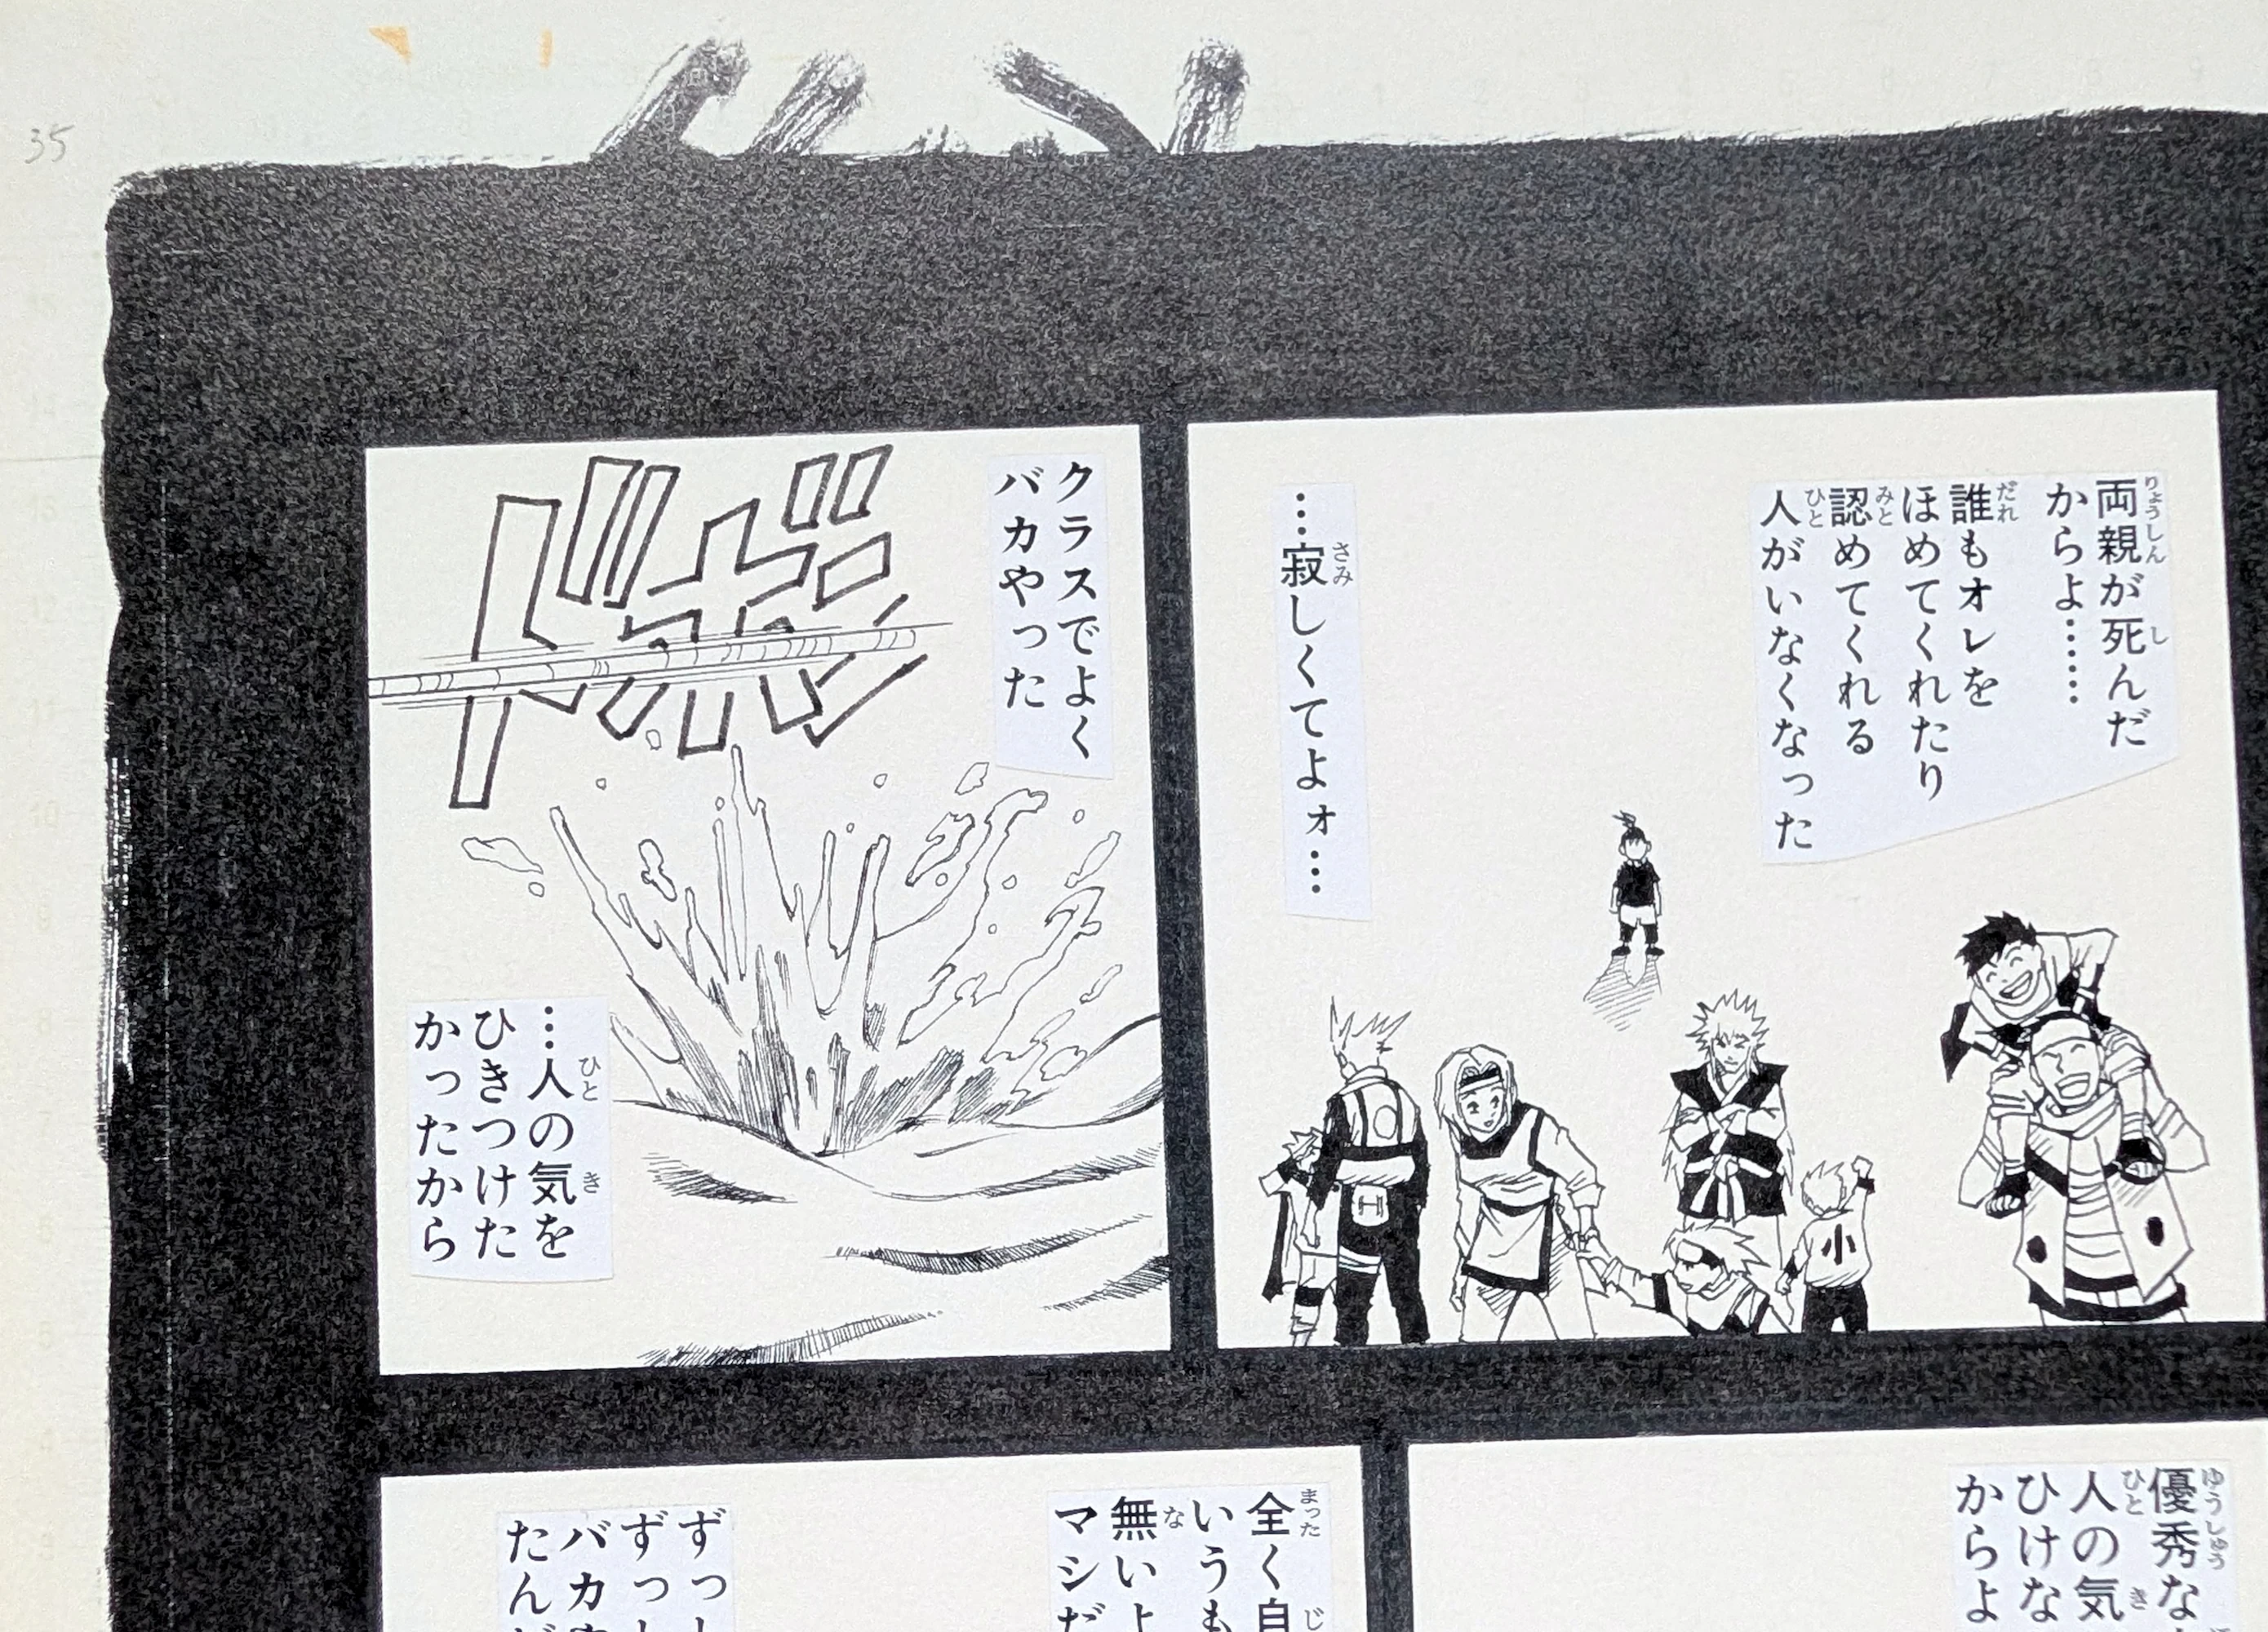 35
両親が死んだ
からよ……
誰もオレを
ほめてくれたり
認めてくれる
人がいなくなった
…寂しくてよォ…
小
クラスでよく
バカやった
ドボン
…人の気を
ひきつけた
かったから
優秀な
人の気
ひけな
からよ
全く自
いうも
無いよ
マシだ
ずっ
ずっ
バカ
たん